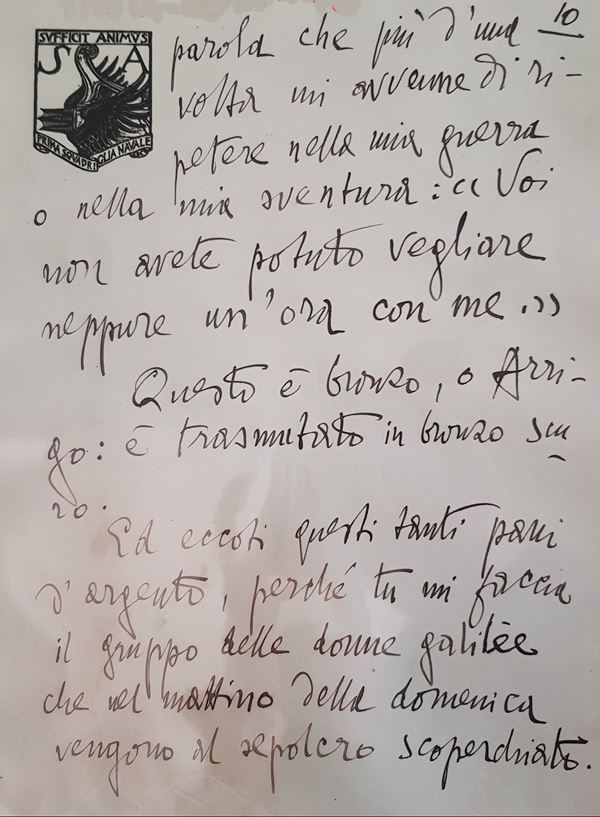 10
SVFFICIT ANIMVS
S A
PRIMA SQVADRIGLIA NAVALE
parola che più d'una
volta mi avvenne di ri-
petere nella mia guerra
o nella mia sventura: « Voi
non avete potuto vegliare
neppure un'ora con me.»
Questo è bronzo, o Arri-
go: è trasmutato in bronzo scu
ro.
Ed eccoti questi tanti pani
d'argento, perché tu mi faccia
il gruppo delle donne galilèe
che nel mattino della domenica
vengono al sepolcro scoperchiato.